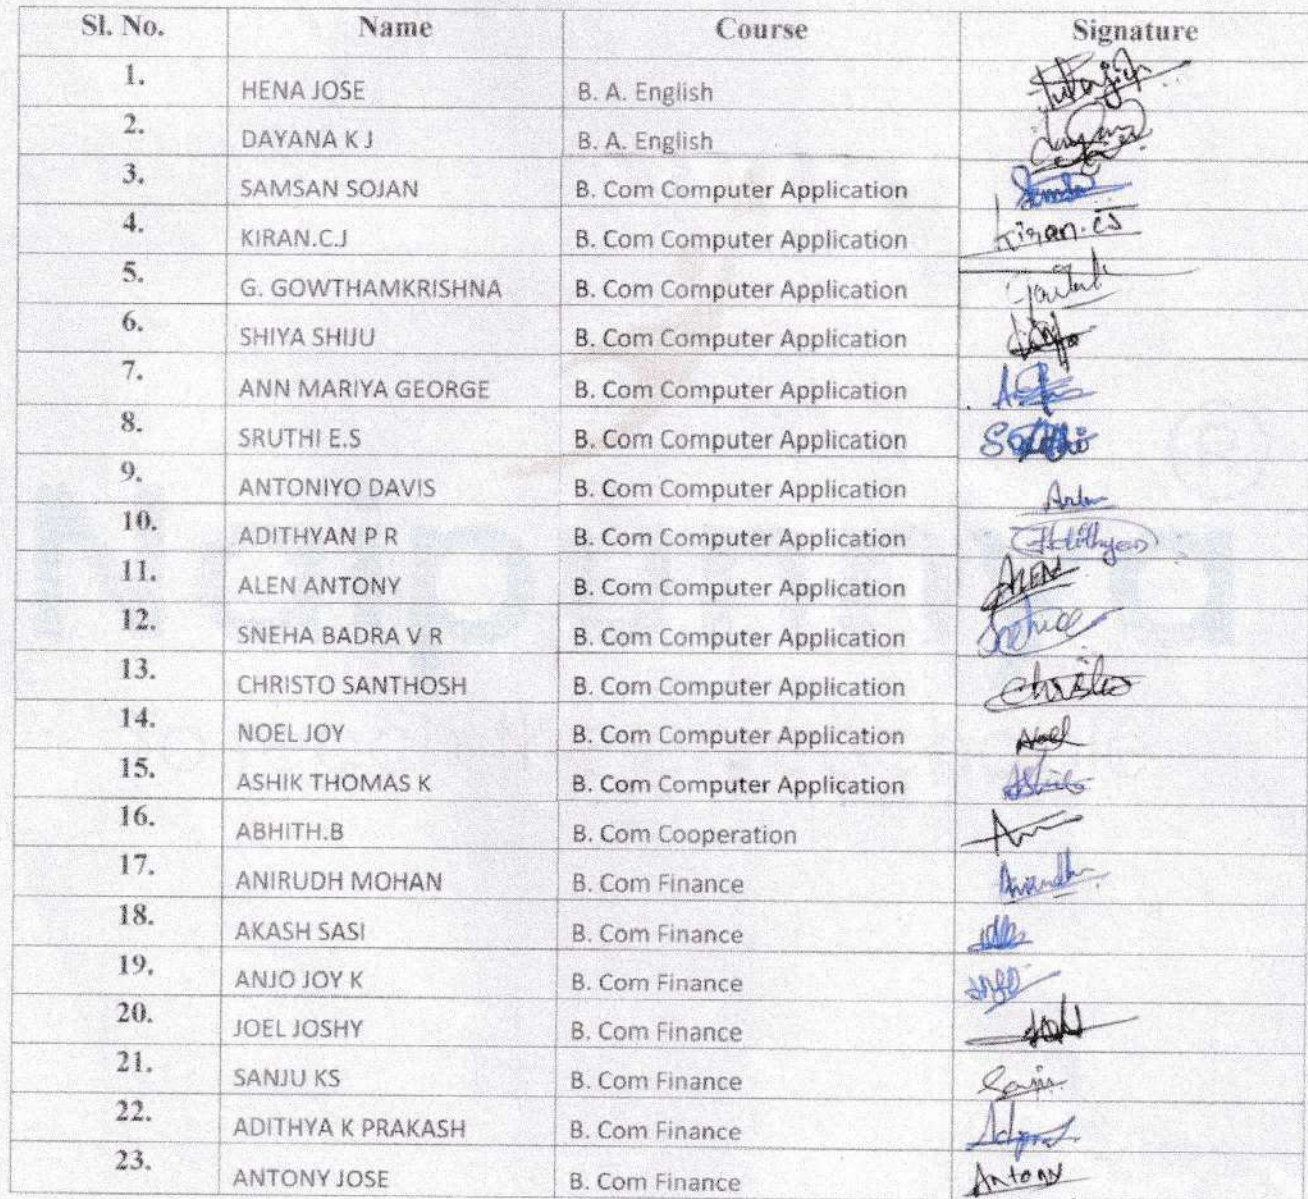 Sl. No. Name Course Signature
1. HENA JOSE B. A. English
2. DAYANA K J B. A. English
3. SAMSAN SOJAN B. Com Computer Application
4. KIRAN.C.J B. Com Computer Application Kiran.CJ
5. G. GOWTHAMKRISHNA B. Com Computer Application
6. SHIYA SHIJU B. Com Computer Application
7. ANN MARIYA GEORGE B. Com Computer Application
8. SRUTHI E.S B. Com Computer Application
9. ANTONIYO DAVIS B. Com Computer Application
10. ADITHYAN P R B. Com Computer Application Adithyan
11. ALEN ANTONY B. Com Computer Application ALEN
12. SNEHA BADRA V R B. Com Computer Application
13. CHRISTO SANTHOSH B. Com Computer Application Christo
14. NOEL JOY B. Com Computer Application Noel
15. ASHIK THOMAS K B. Com Computer Application Ashik
16. ABHITH.B B. Com Cooperation
17. ANIRUDH MOHAN B. Com Finance
18. AKASH SASI B. Com Finance
19. ANJO JOY K B. Com Finance
20. JOEL JOSHY B. Com Finance
21. SANJU KS B. Com Finance
22. ADITHYA K PRAKASH B. Com Finance
23. ANTONY JOSE B. Com Finance Antony